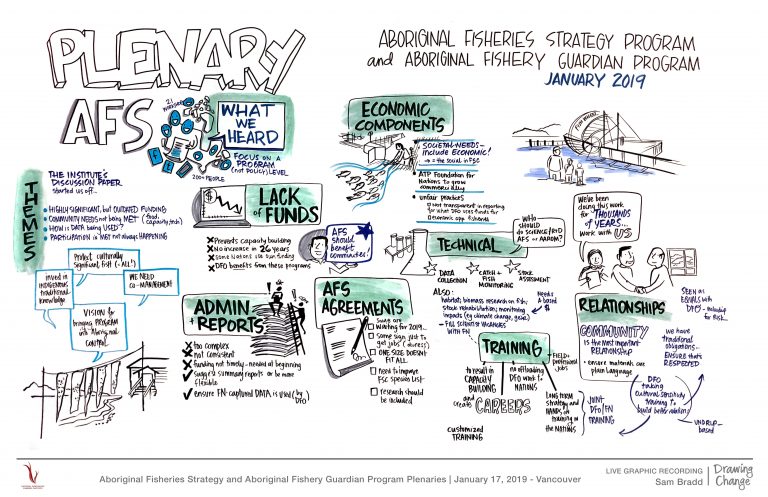 PLENARY
AFS
ABORIGINAL FISHERIES STRATEGY PROGRAM
and ABORIGINAL FISHERY GUARDIAN PROGRAM
JANUARY 2019
21
WHAT
WE
HEARD
FOCUS ON A
PROGRAM
(not POLICY) LEVEL
200+ PEOPLE
THEMES
THE INSTITUTE'S
DISCUSSION PAPER
started us off...
HIGHLY SIGNIFICANT, but OUTDATED FUNDING
COMMUNITY NEEDS not being MET (food, capacity, tech)
HOW is DATA being USED?
PARTICIPATION is not always HAPPENING
Protect culturally
significant fish (=ALL!)
invest in
INDIGENOUS
traditional
knowledge
WE NEED
CO-MANAGEMENT
VISION for
bringing PROGRAM
into Aboriginal
CONTROL
LACK
of FUNDS
Prevents capacity building
No increase in 26 years
some Nations use own funding
DFO benefits from these programs
ADMIN
+ REPORTS
too complex
not consistent
funding not timely - needed at beginning
suggest summary reports or be more
flexible
ensure FN-captured DATA is used (by
DFO)
ECONOMIC
COMPONENTS
SOCIETAL NEEDS -
include ECONOMIC!
→ = the social in FSC
ATP Foundation for
Nations to grow
commercially
unfair practices
Not transparent in reporting
for what DFO uses funds for
economic opp. fisheries
AFS
should
benefit
communities!
AFS
AGREEMENTS
some are
waiting for 2019...
some sign just to
get jobs (duress)
ONE SIZE DOESN'T
FIT ALL
need to improve
FSC species LIST
research should
be included
TECHNICAL
WHO
SHOULD
do SCIENCE/R+D
AFS or AAROM?
DATA
COLLECTION
CATCH +
FISH
MONITORING
STOCK
ASSESSMENT
ALSO:
habitat; biomass research on fish;
stock rehabilitation; monitoring
impacts (eg climate change, genes)
- Fill scientist vacancies
with FN
Needs
a based
$
TRAINING
to result in
CAPACITY
BUILDING
and
creates
CAREERS
customized
TRAINING
no offloading
DFO work to
NATIONS
FIELD +
professional
jobs
LONG TERM
strategy and
HANDS on
training in
the NATIONS
JOINT
DFO/FN
TRAINING
We've been
doing this work
for THOUSANDS
of YEARS...
work with US
RELATIONSHIPS
SEEN as
EQUALS with
DFO - including
for FISH...
COMMUNITY
is the most important
RELATIONSHIP
ensure materials are
plain language
we have
traditional
obligations...
ENSURE THAT'S
RESPECTED
DFO
taking
cultural sensitivity
training to
build better relations
UNDRIP-
based
Aboriginal Fisheries Strategy and Aboriginal Fishery Guardian Program Plenaries | January 17, 2019 - Vancouver
LIVE GRAPHIC RECORDING
Sam Bradd
Drawing
Change